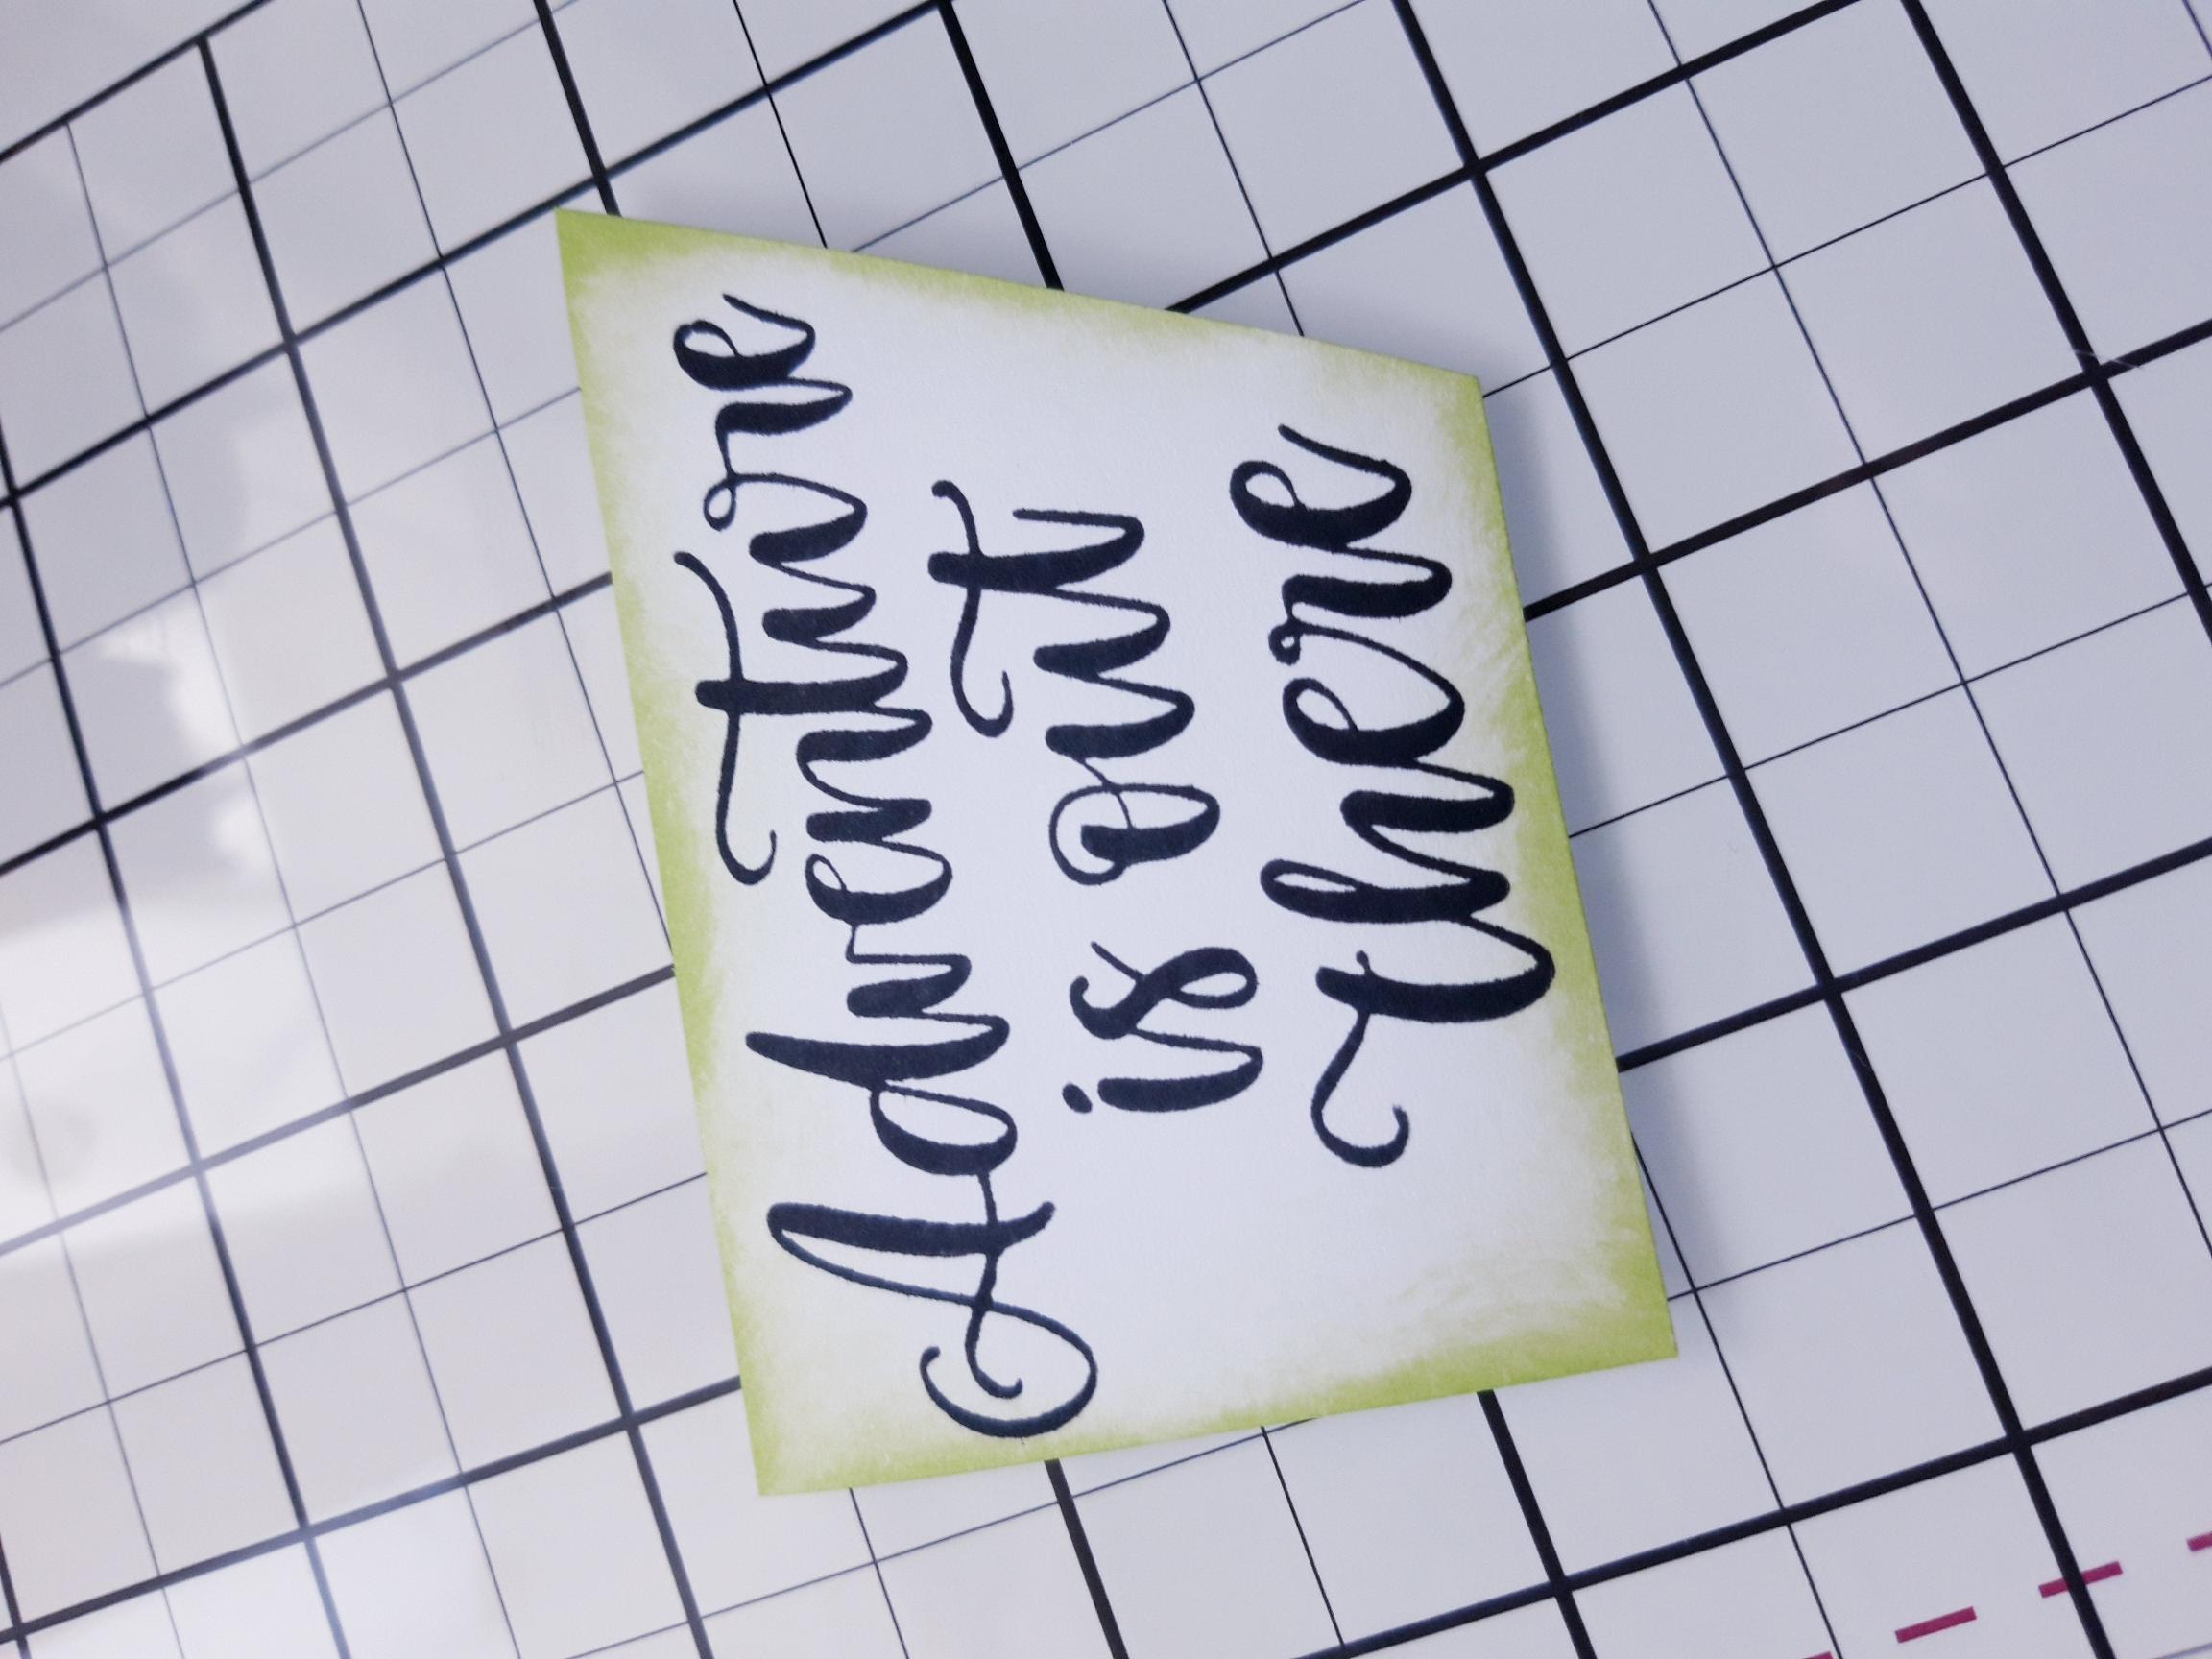 Adventure
is out
there